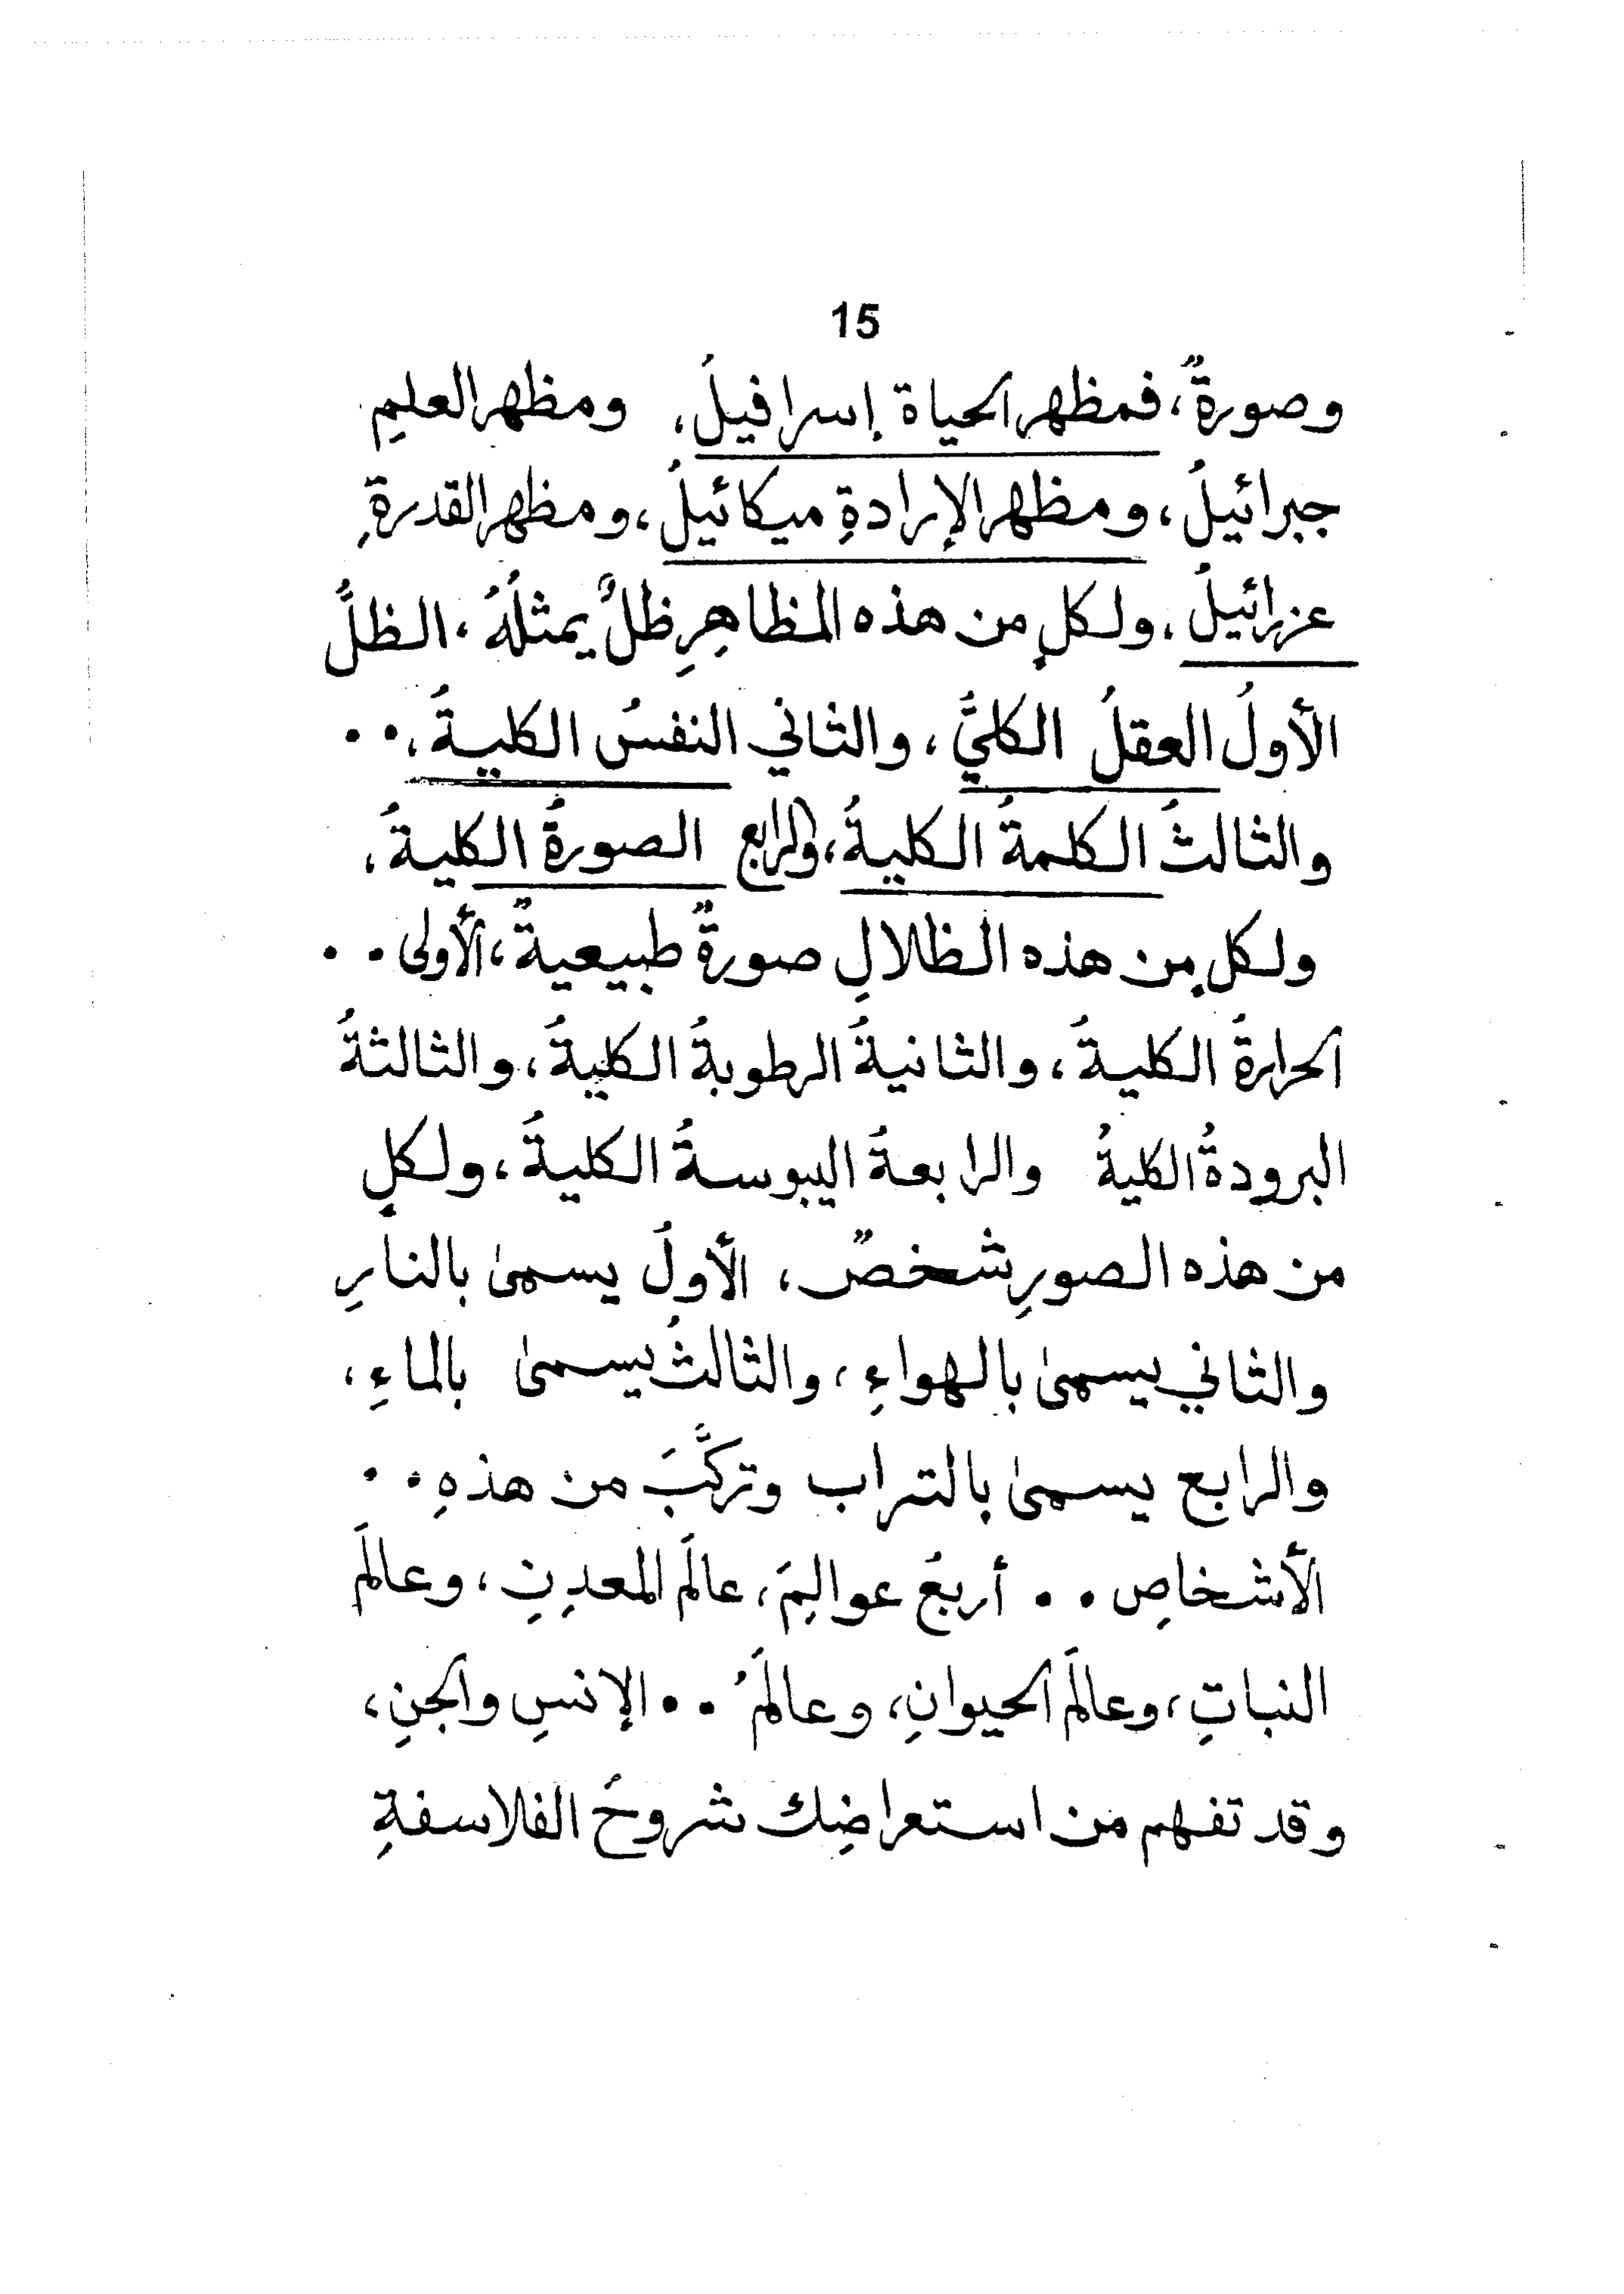 15
وصورةٌ، فمظهر الحياة إسرافيلُ، ومظهر العلمِ
جبرائيلُ، ومظهر الإرادةِ ميكائيلُ، ومظهر القدرةِ
عزرائيلُ، ولكلٍ من هذه المظاهِرِ ظلٌ يمثلُهُ، الظلُّ
الأولُ العقلُ الكليُّ، والثاني النفسُ الكليةُ،..
والثالثُ الكلمةُ الكليةُ، والرابع الصورةُ الكليةُ،
ولكلٍ من هذه الظلالِ صورةٌ طبيعيةٌ، الأولى..
الحرارةُ الكليةُ، والثانيةُ الرطوبةُ الكليةُ، والثالثةُ
البرودةُ الكليةُ والرابعةُ اليبوسةُ الكليةُ، ولكلٍ
من هذه الصورِ شخصٌ، الأولُ يسمىٰ بالنارِ
والثاني يسمىٰ بالهواءِ، والثالثُ يسمىٰ بالماءِ،
والرابع يسمىٰ بالتراب وتركَّبَ من هذهِ..
الأشخاصِ.. أربعُ عوالِمَ، عالَم المعدِنِ، وعالَم
النباتِ، وعالَم الحيوانِ، وعالَمُ.. الإنسِ والجنِ،
وقد تفهم من استعراضِك شروحُ الفلاسفةِ